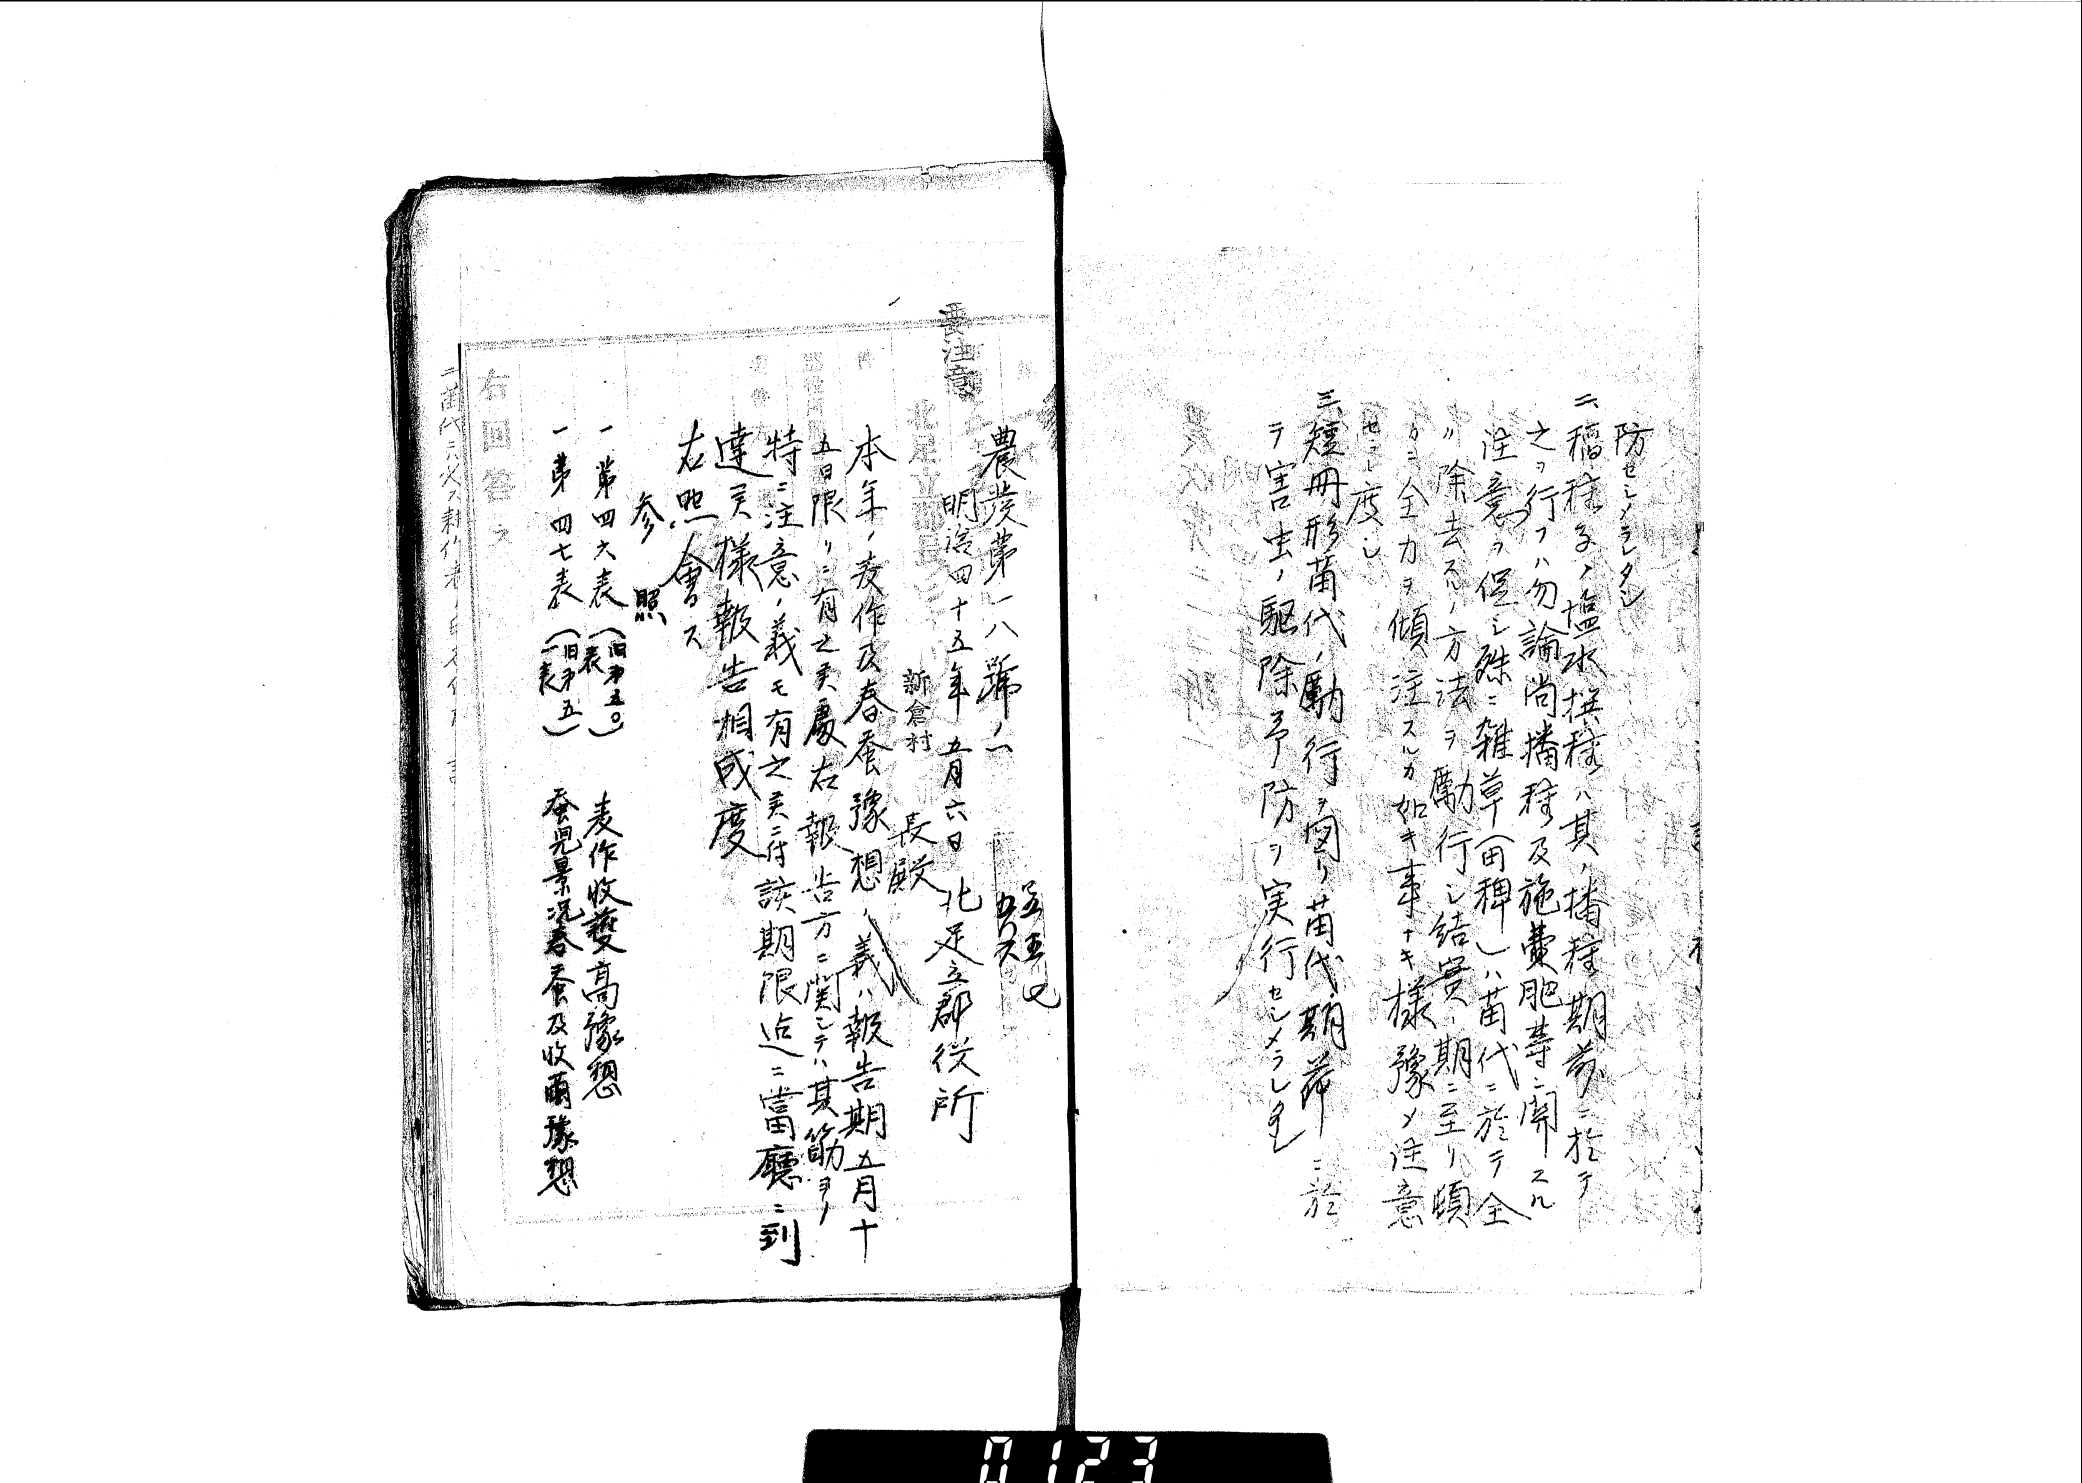 防セシメラレタシ
二、稲種子ノ塩水撰種ハ其ノ播種期前ニ於テ
之ヲ行フハ勿論尚播種及施費肥等ニ関スル
注意ヲ促シ殊ニ雑草(田稗)ハ苗代ニ於テ全
除去スルノ方法ヲ勵行シ結實ノ期ニ至リ頓
カニ全力ヲ傾注スルカ如キ事ナキ様豫メ注意
セラレ度シ
三、短冊形苗代ノ勵行ヲ図リ苗代期節ニ於
テ害虫ノ駆除予防ヲ実行セシメラレ度シ
要注意
農發第一八號ノ一
明治四十五年五月六日 北足立郡役所
新倉村長殿
本年ノ麦作及春蚕豫想ノ義ハ報告期五月十
五日限リニ有之候處右報告方ニ関シテハ其筋ヨリノ
特ニ注意ノ義モ有之候ニ付該期限迠ニ當廳ニ到
達候様報告相成度
右照會ス
参照
一第四六表(旧第五〇表) 麦作收穫高豫想
一第四七表(旧第五一表) 蚕児景況春蚕及收繭豫想
右回答ス
0123